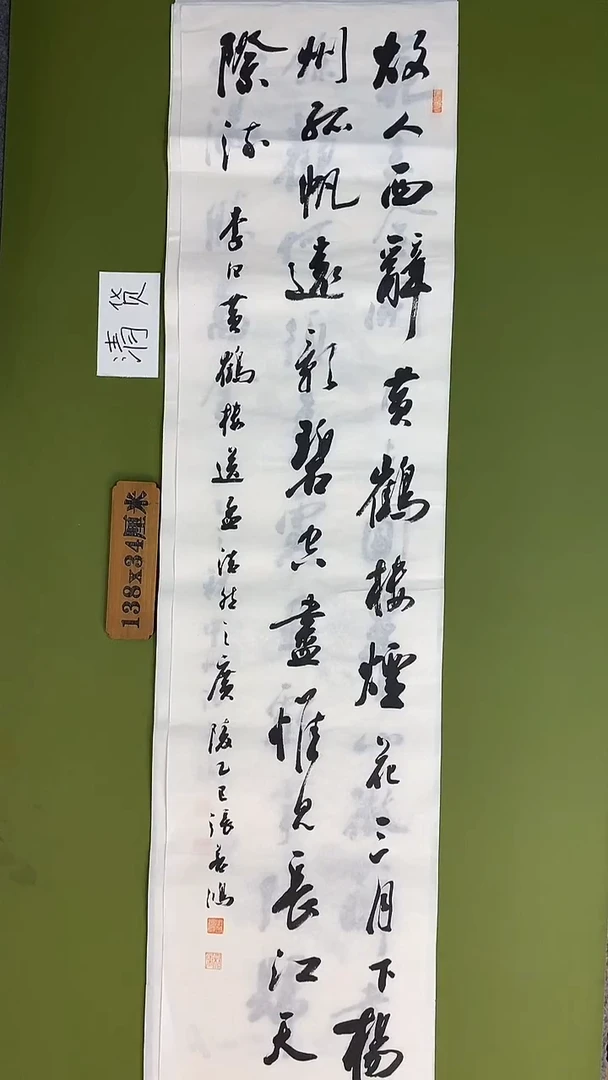 故人西辭黄鶴樓煙花三月下楊
州孤帆遠影碧空盡惟見長江天
際流
李白黄鶴樓送孟浩然之廣陵乙巳張善鴻
清货
138x34厘米